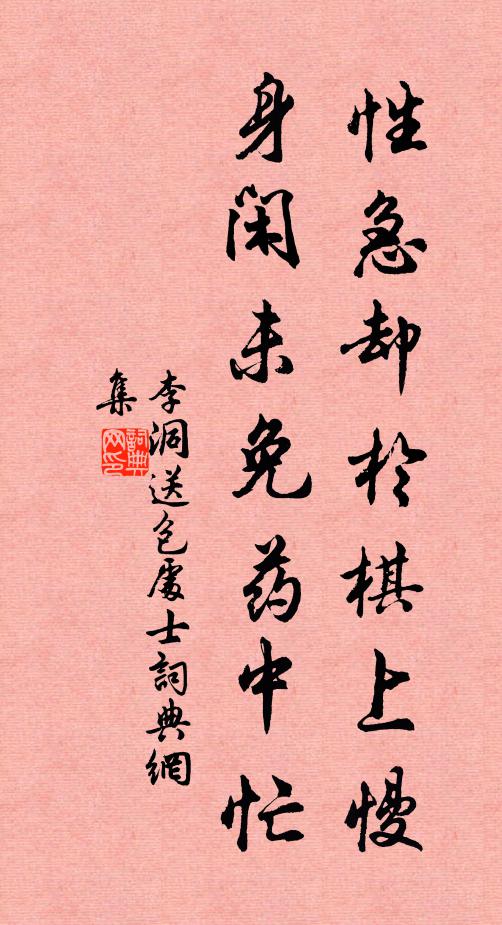 性急却於棋上慢
身闲未免药中忙
李洞送包處士詞典網
集
詞典网印